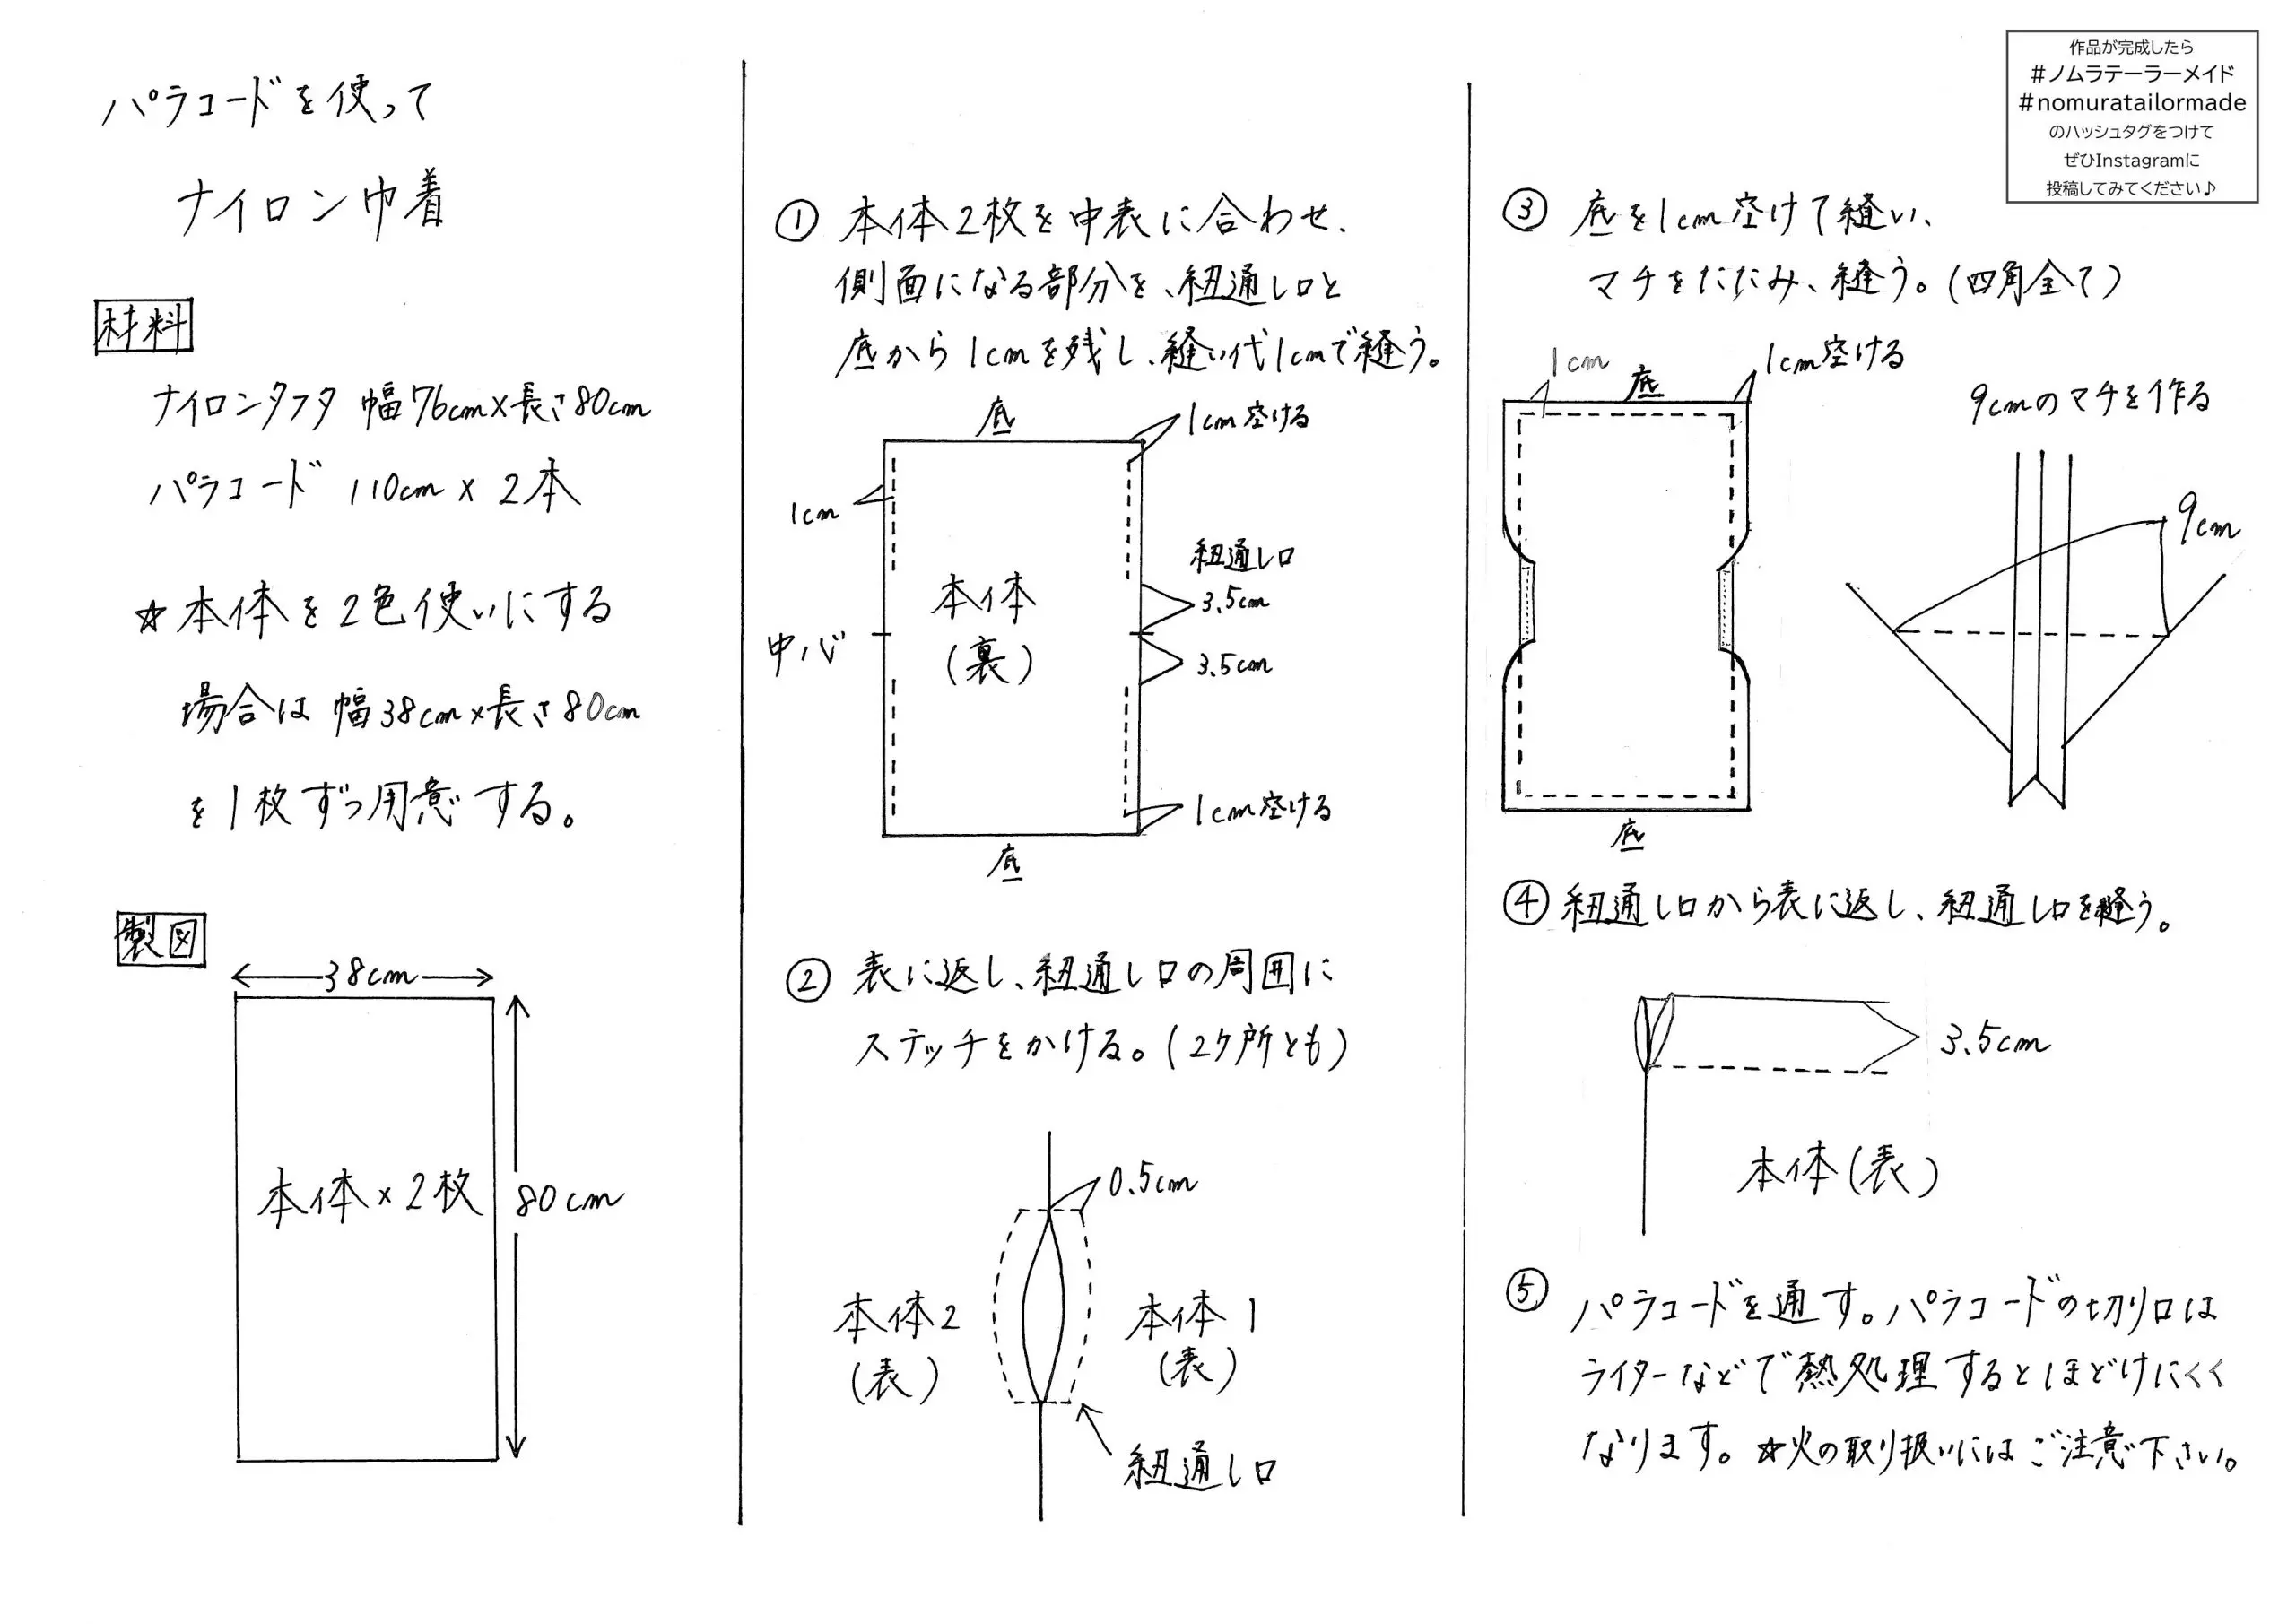 パラコードを使って
ナイロン巾着
材料
ナイロンタフタ 幅76cm×長さ80cm
パラコード 110cm × 2本
☆本体を2色使いにする
場合は 幅38cm×長さ80cm
を1枚ずつ用意する。
製図
38cm
本体×2枚
80cm
① 本体2枚を中表に合わせ、
側面になる部分を、紐通し口と
底から1cmを残し、縫い代1cmで縫う。
底
1cm空ける
1cm
紐通し口
3.5cm
本体
(裏)
中心
3.5cm
1cm空ける
底
② 表に返し、紐通し口の周囲に
ステッチをかける。(2ケ所とも)
0.5cm
本体2
(表)
本体1
(表)
紐通し口
作品が完成したら
#ノムラテーラーメイド
#nomuratailormade
のハッシュタグをつけて
ぜひInstagramに
投稿してみてください♪
③ 底を1cm空けて縫い、
マチをたたみ、縫う。(四角全て)
1cm
底
1cm空ける
9cmのマチを作る
9cm
底
④ 紐通し口から表に返し、紐通し口を縫う。
3.5cm
本体(表)
⑤ パラコードを通す。パラコードの切り口は
ライターなどで熱処理するとほどけにくく
なります。☆火の取り扱いにはご注意下さい。